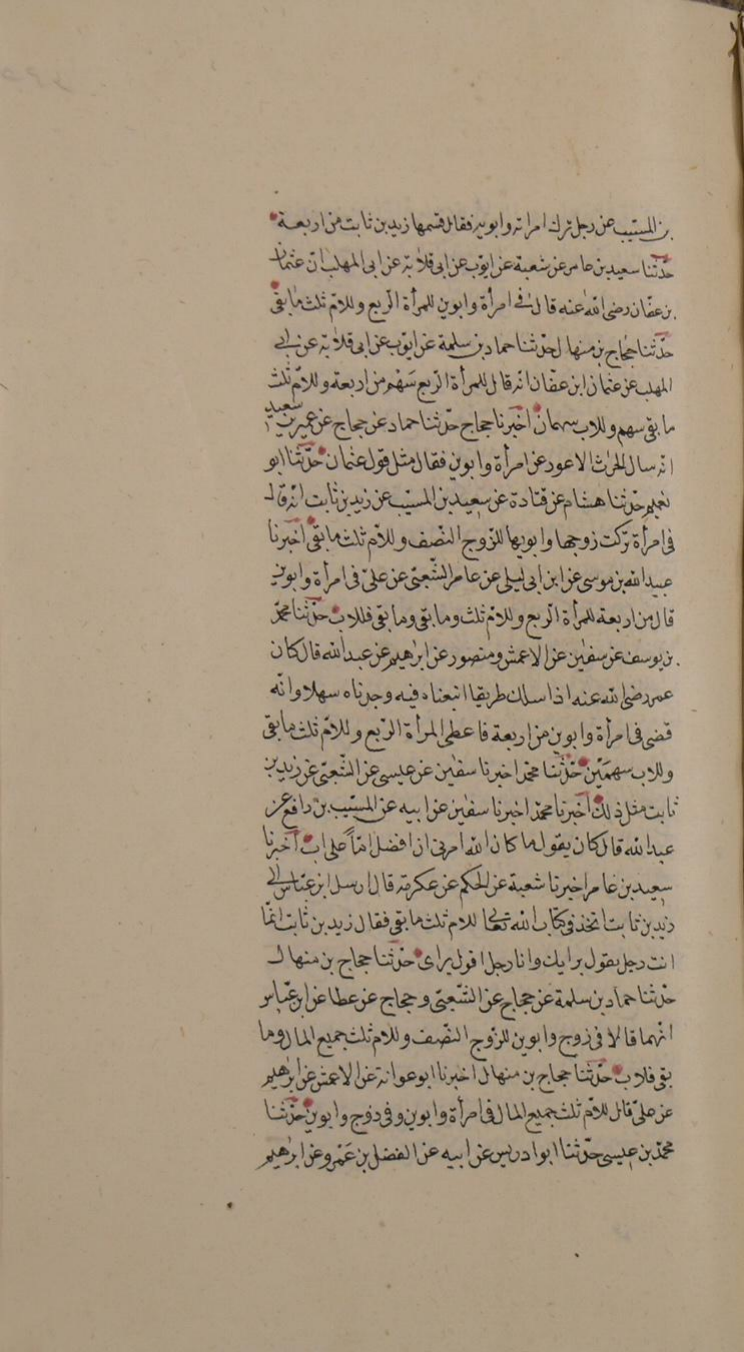 بن المسيب عن رجل ترك امراته وابويه فقال قسمها زيد بن ثابت من اربعة
حدثنا سعيد بن عامر عن شعبة عن ايوب عن ابى قلابة عن ابى المهلب ان عثمان
بن عفان رضى الله عنه قال فى امرأة وابوين للمرأة الربع وللام ثلث ما بقى
حدثنا حجاج بن منهال حدثنا حماد بن سلمة عن ايوب عن ابى قلابة عن ابى
المهلب عن عثمان ابن عفان انه قال للمرأة الربع سهم من اربعة وللام ثلث
ما بقى سهم وللاب سهمان اخبرنا حجاج حدثنا حماد عن حجاج عن عمير بن سعيد
انه سال الحرث الاعور عن امرأة وابوين فقال مثل قول عثمان حدثنا ابو
نعيم حدثنا هشام عن قتادة عن سعيد بن المسيب عن زيد بن ثابت انه قال
فى امرأة تركت زوجها وابويها للزوج النصف وللام ثلث ما بقى اخبرنا
عبيد الله بن موسى عن ابن ابى ليلى عن عامر الشعبى عن على فى امرأة وابوين
قال من اربعة للمرأة الربع وللام ثلث وما بقى وما بقى فللاب حدثنا محمد
بن يوسف عن سفين عن الاعمش ومنصور عن ابرهيم عن عبد الله قال كان
عمر رضى الله عنه اذا سلك طريقا اتبعناه فيه وجدناه سهلا وانه
قضى فى امرأة وابوين من اربعة فاعطى المرأة الربع وللام ثلث ما بقى
وللاب سهمين حدثنا محمد اخبرنا سفين عن عيسى عن الشعبى عن زيد بن
ثابت مثل ذلك اخبرنا محمد اخبرنا سفين عن ابيه عن المسيب بن رافع عن
عبد الله قال كان يقول ما كان الله امرنى ان افضل اماً على اب اخبرنا
سعيد بن عامر اخبرنا شعبة عن الحكم عن عكرمة قال ارسل ابن عباس الى
زيد بن ثابت اتجد فى كتاب الله تعالى للام ثلث ما بقى فقال زيد بن ثابت انما
انت رجل يقول برايك وانا رجل اقول براى حدثنا حجاج بن منهال
حدثنا حماد بن سلمة عن حجاج عن الشعبى وحجاج عن عطا عن ابن عباس
انهما قالا فى زوج وابوين للزوج النصف وللام ثلث جميع المال وما
بقى فلاب حدثنا حجاج بن منهال اخبرنا ابو عوانة عن الاعمش عن ابرهيم
عن على قال للام ثلث جميع المال فى امرأة وابوين وفى زوج وابوين حدثنا
محمد بن عيسى حدثنا ابو ادريس عن ابيه عن الفضل بن عمرو عن ابرهيم